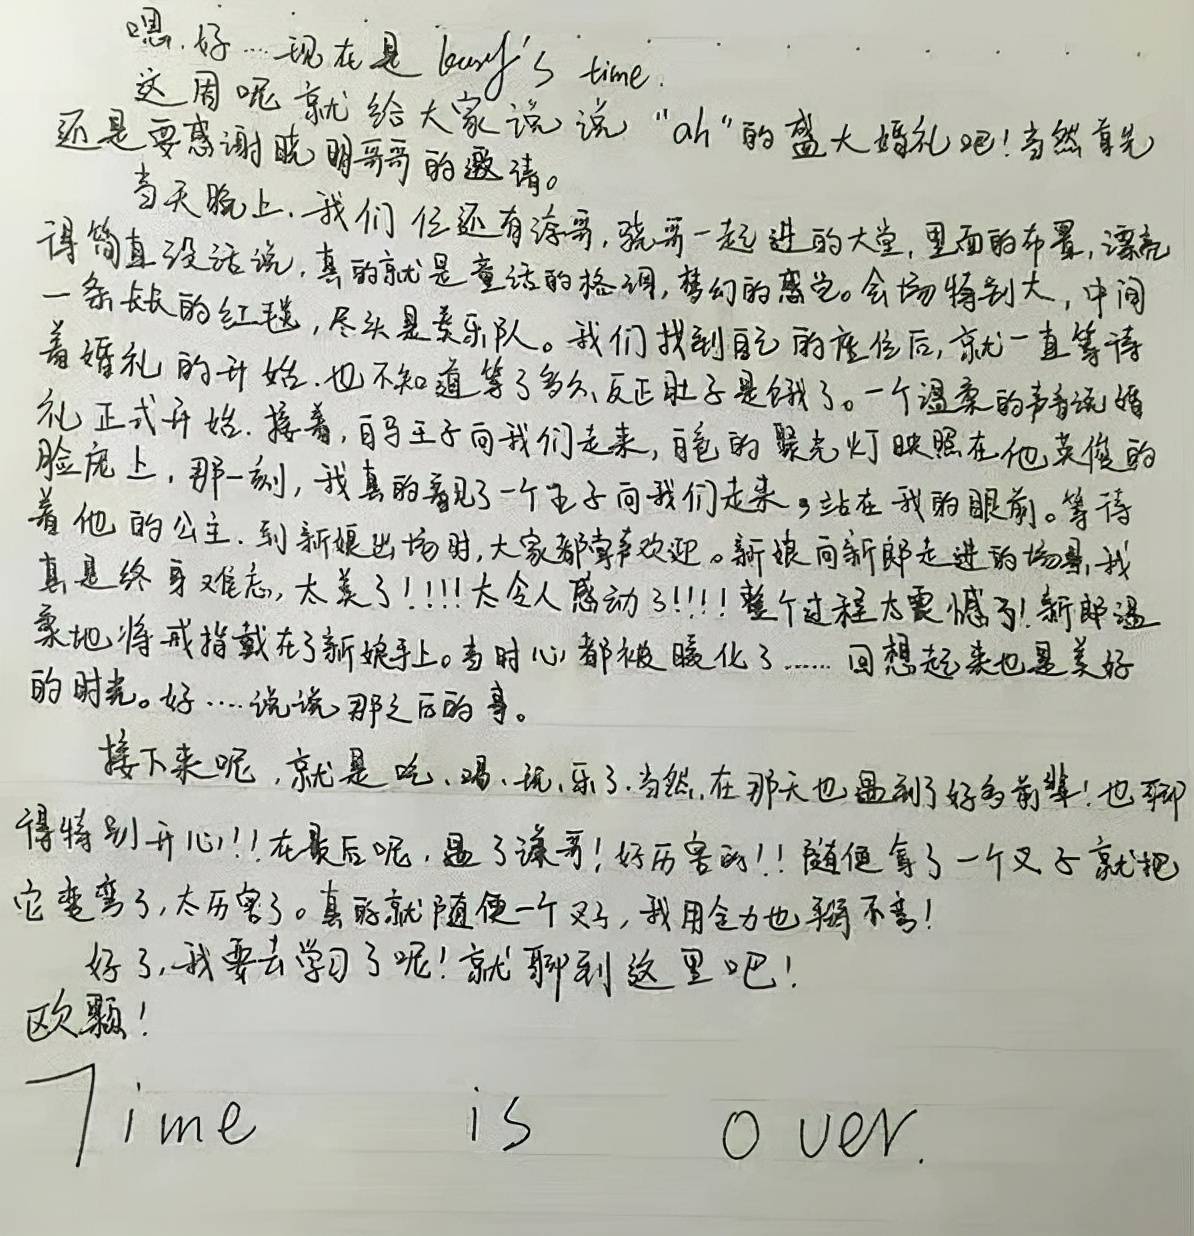 嗯.好....现在是 busy's time.
这周呢就给大家说说“ah”的盛大婚礼吧!当然首先
还是要感谢晓明哥哥的邀请。
当天晚上.我们仨还有涂哥,骁哥一起进的大堂,里面的布置,漂亮
得简直没话说,真的就是童话的格调,梦幻的感觉。会场特别大,中间
一条长长的红毯,尽头是奏乐队。我们找到自己的座位后,就一直等待
着婚礼的开始.也不知道等了多久,反正肚子是饿了。一个温柔的声音说婚
礼正式开始.接着,白马王子向我们走来,白色的聚光灯映照在他英俊的
脸庞上,那一刻,我真的看见了一个王子向我们走来,站在我的眼前。等待
着他的公主.到新娘出场时,大家都掌声欢迎。新娘向新郎走进的场景,我
真是终身难忘,太美了!!!!太令人感动了!!!!整个过程太震憾了!新郎温
柔地将戒指戴在了新娘手上。当时心都被暖化了......回想起来也是美好
的时光。好....说说那之后的事。
接下来呢,就是吃、喝、玩、乐了.当然,在那天也遇到了好多前辈!也聊
得特别开心!!在最后呢,遇了谦哥!好厉害的!!随便拿了一个叉子就把
它变弯了,太厉害了。真的就随便一个叉子,我用全力也掰不弯!
好了,我要去学习了呢!就聊到这里吧!
欧颗!
Time is over.